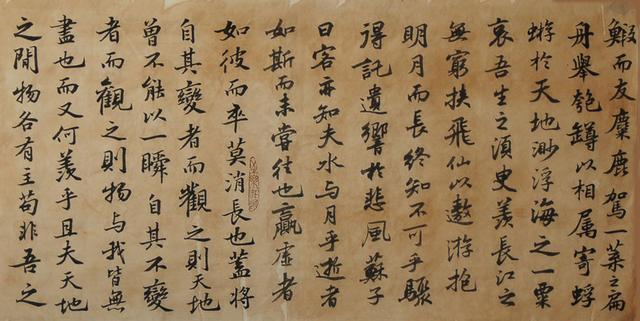 鰕而友麋鹿駕一葉之扁
舟舉匏罇以相属寄蜉
蝣於天地渺浮海之一粟
哀吾生之須臾羨長江之
無窮挾飛仙以遨游抱
明月而長終知不可乎驟
得託遺響於悲風蘇子
曰客亦知夫水与月乎逝者
如斯而未嘗往也贏虛者
如彼而卒莫消長也蓋將
自其變者而觀之則天地
曾不能以一瞬自其不變
者而觀之則物与我皆無
盡也而又何羨乎且夫天地
之間物各有主苟非吾之